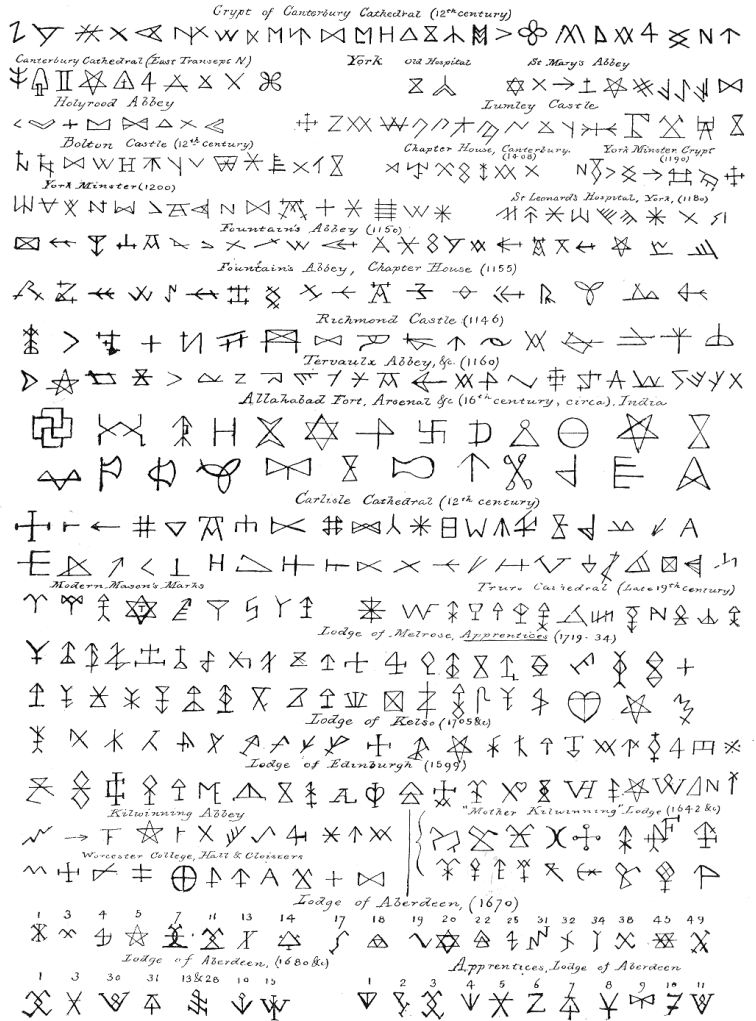 Crypt of Canterbury Cathedral (12th century)
Canterbury Cathedral (East Transept N) York Old Hospital St Mary's Abbey
Holyrood Abbey Lumley Castle
Bolton Castle (12th century) Chapter House, Canterbury. (1408) York Minster Crypt (1190)
York Minster (1200) St Leonard's Hospital, York, (1180)
Fountain's Abbey (1150)
Fountain's Abbey, Chapter House (1155)
Richmond Castle (1146)
Tervaulx Abbey, &c. (1160)
Allahabad Fort, Arsenal &c (16th century, circa). India
Carlisle Cathedral (12th century)
Modern Mason's Marks Truro Cathedral (Late 19th century)
Lodge of Melrose, Apprentices (1719-34)
Lodge of Kelso (1705 &c)
Lodge of Edinburgh (1599)
Kilwinning Abbey "Mother Kilwinning" Lodge (1642 &c)
Worcester College, Hall & Cloisters
Lodge of Aberdeen, (1670)
1 3 4 5 7 11 13 14 17 18 19 20 22 25 31 32 34 38 45 49
Lodge of Aberdeen, (1680 &c) Apprentices, Lodge of Aberdeen
1 3 30 31 13 & 28 10 15 1 2 3 4 5 6 7 8 9 10 11